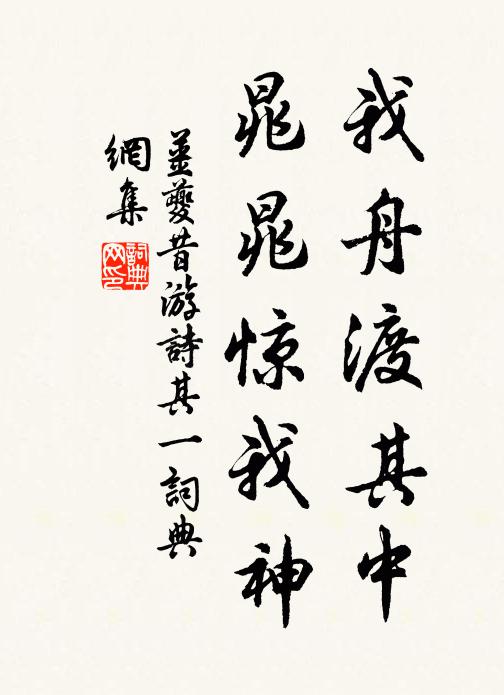 我舟渡其中
晃晃惊我神
姜夔昔游詩其一詞典
網集
詞典网印